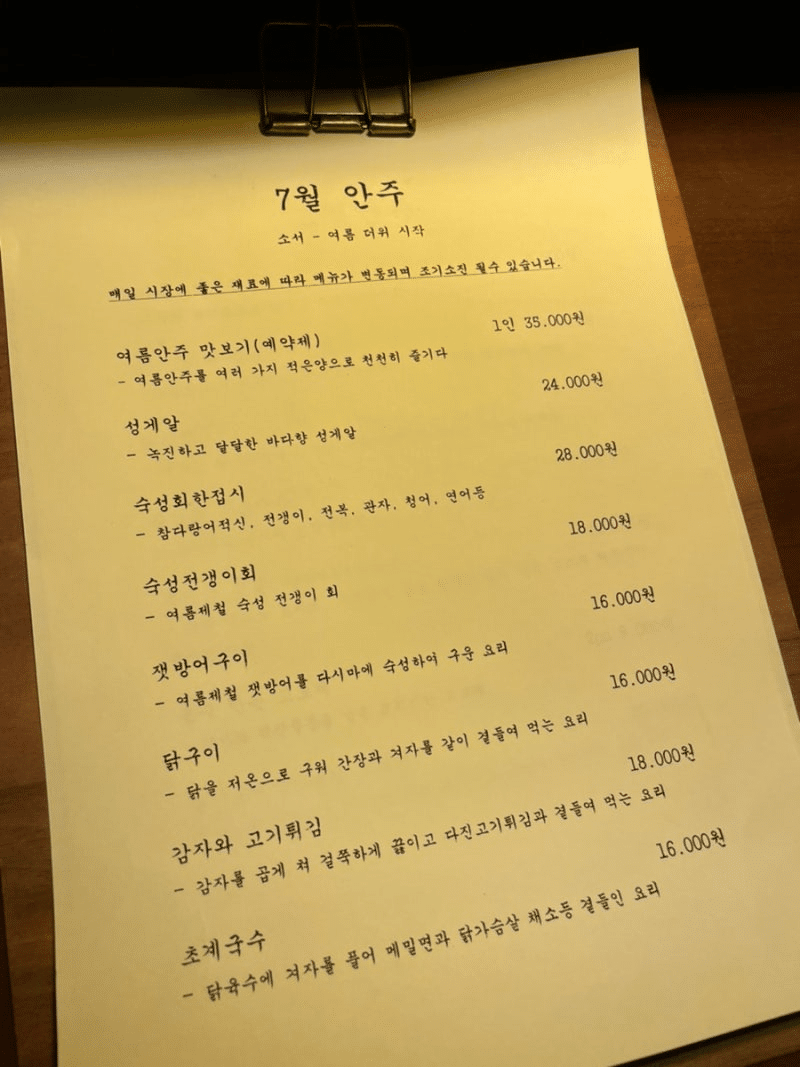 7월 안주
소서 - 여름 더위 시작
매일 시장에 좋은 재료에 따라 메뉴가 변동되며 조기소진 될수 있습니다.
여름안주 맛보기(예약제) 1인 35.000원
- 여름안주를 여러 가지 적은양으로 천천히 즐기다
성게알 24.000원
- 녹진하고 달달한 바다향 성게알
숙성회한접시 28.000원
- 참다랑어적신, 전갱이, 전복, 관자, 청어, 연어등
숙성전갱이회 18.000원
- 여름제철 숙성 전갱이 회
잿방어구이 16.000원
- 여름제철 잿방어를 다시마에 숙성하여 구운 요리
닭구이 16.000원
- 닭을 저온으로 구워 간장과 겨자를 같이 곁들여 먹는 요리
감자와 고기튀김 18.000원
- 감자를 곱게 쳐 걸쭉하게 끓이고 다진고기튀김과 곁들여 먹는 요리
초계국수 16.000원
- 닭육수에 겨자를 풀어 메밀면과 닭가슴살 채소등 곁들인 요리